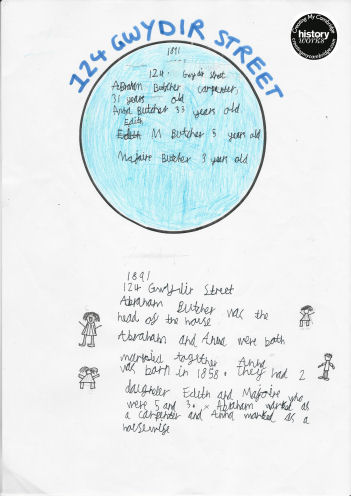 124 GWYDIR STREET
Creating My Cambridge
history
works
creatingmycambridge.com
1891
124. Gwydir Street
Abraham Butcher carpenter,
31 years old
Anna Butcher 33 years old.
Edith
Edeth M Butcher 5 years old
Majoire Butcher 3 years old
1891
124 Gwydir Street
Abraham Butcher was the
head of the house
Abraham and Anna were both
married together Anna
was born in 1858. They had 2
daughter Edeth and Majoire who
were 5 and 3. Abraham worked as
a carpenter and Anna worked as a
housewife